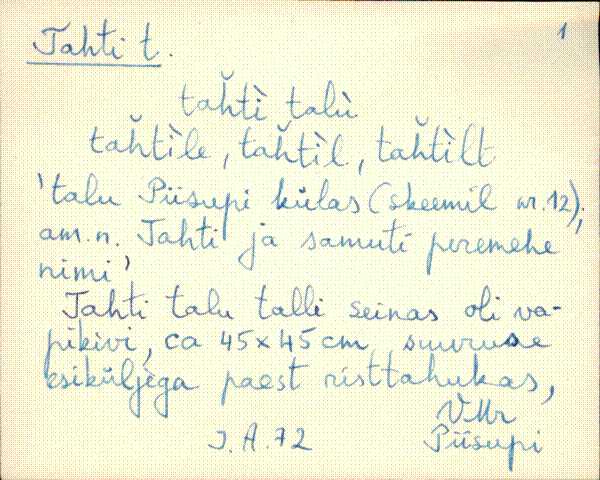 Tahti t. 1
tah̆tì talù
tah̆tìle, tah̆tìl, tah̆tìlt
'talu Piisupi külas (skeemil nr. 12);
am. n. Tahti ja samuti peremehe
nimi'
Tahti talu talli seinas oli va-
pikivi, ca 45×45 cm suuruse
esiküljega paest risttahukas,
VMr
J. A. 72 Piisupi